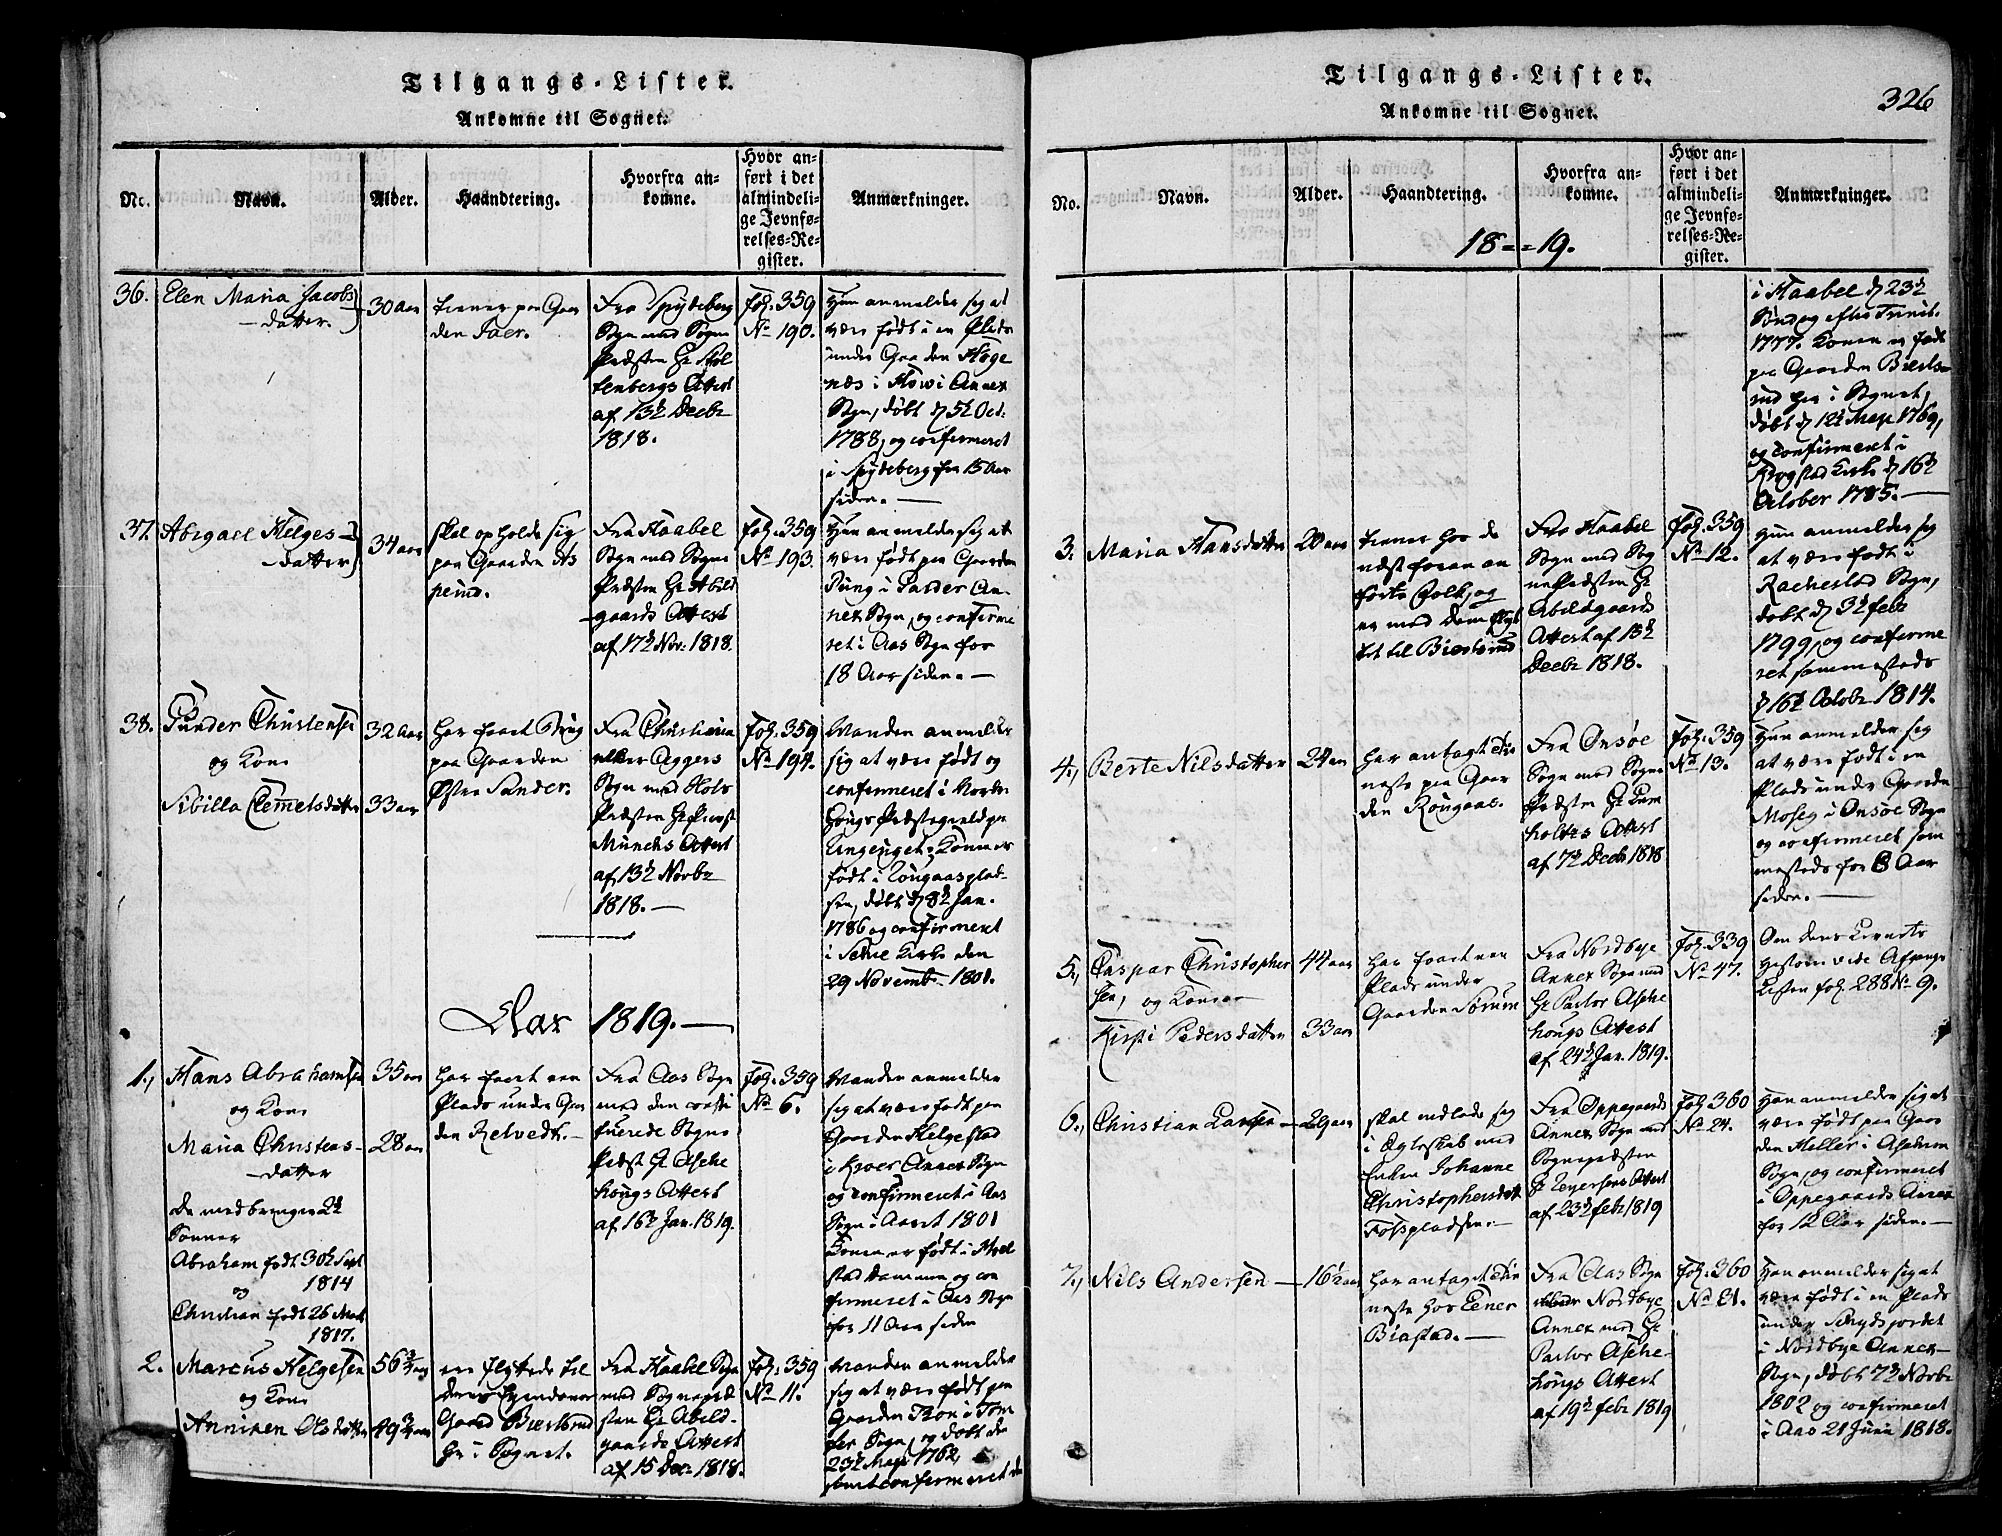 Tilgangs-Lister.
Ankomne til Sognet.
No.
Navn.
Alder.
Haandtering.
Hvorfra an-
komne.
Hvor an-
ført i det
almindeli-
ge Jevnfø-
relses-Re-
gister.
Anmærkninger.
36.
Elen Maria Jacobs
datter.
30 aar
tiener paa Gaar
den Iaer.
Fra Spydeberg
Sogn med Sogne
Præsten Hr Stol
tenbergs Attest
af 13de Decbr
1818.
Fol. 359
No 190.
Hun anmelder sig at
være født i en Plads
under Gaarden Hage
næs i Howi Annex
Sogn, døbt d 5te Oct:
1788, og confirmeret
i Spydeberg for 15 Aar
siden. —
37.
Abigael Helges-
datter
34 aar
skal opholde sig
paa Gaarden As
peund.
Fra Haabel
Sogn med Sogne
Præsten Hr Abild
gaards Attest
af 17de Nov: 1818.
Fol. 359
No 193.
Hun anmelder sig at
være født paa Gaarden
Pung i Sander An-
nex Sogn, og confirme
ret i Aas Sogn for
18 Aar siden. —
38.
Gunder Christensen
og Kone
Sibilla Clemetsdatter
32 Aar
33 aar
har faaet Brug
paa Gaarden
Østre Sander.
Fra Christiania
eller Aggers
Sogn med
Præsten Hr Provst
Munchs Attest
af 13de Novbr
1818. —
Fol. 359
No 194.
Manden anmelder
sig at være født og
confirmeret i Norder
hougs Præstegield paa
Konen er
født i
sen, døbt d 8de Jan.
1786 og confirmeret
i Kirke den
29 Novembr 1801.
Aar 1819. —
1.,
Hans Abrahamsen
og Kone
Maria Christens-
datter
De medbringer 2de
Sønner
Abraham født 30te Sept
1814
og
Christian født 26 Mart
1817.
35 aar
28 aar
har faaet en
Plads under Gaar
den Relvedt. —
Fra Aas Sogn
med den consti
tuerede Sogne
Præst Hr Asche
hougs Attest
af 16de Jan. 1819.
Fol. 359
No 6.
Manden anmelder
sig at være født paa
Gaarden Helgestad
i Kroer Annex Sogn
og confirmeret i Aas
Sogn i Aaret 1801
Konen er født i
og con
firmeret i Aas Sogn
for 11 Aar siden
2.
Marcus Helgesen
og Kone
Anniken Olsdatter
56 3/4 aar
49 3/4 aar
ere flyttede til
deres Eyendoms
Gaard Bierlsrud
her i Sognet.
Fra Haabel Sogn
med Sognepræ
sten Hr Abild-
gaards Attest
af 15 Dec: 1818.
Fol. 359
No 11.
Manden anmelder
sig at være født paa
Gaarden Tron i Tom
ter Sogn, og døbt den
23de Maji 1762,
samt confirmeret
Tilgangs-Lister.
Ankomne til Sognet.
326
No.
Navn.
Alder.
Haandtering.
Hvorfra an-
komne.
Hvor an-
ført i det
almindeli-
ge Jevnfø-
relses-Re-
gister.
Anmærkninger.
18 = = 19.
i Haabel d 23de
Søndag efter Trinit.
1777. Konen er født
paa Gaarden Bierls-
rud her i Sognet,
døbt d 12te Maji 1769,
og confirmeret i
Krogstad Kirke d 16de
October 1785. —
3.
Maria Hansdatter
20 aar
tiener hos de
næst foran an
førte Folk, og
er med dem flyt
tet til Bierlsrud
Fra Haabel
Sogn med Sog
nepræsten Hr
Abildgaards
Attest af 15de
Decbr 1818.
Fol. 359
No 12.
Hun anmelder sig
at være født i
Rachestad Sogn,
døbt d 3de febr
1799, og confirme
ret sammesteds
d 16de Octobr 1814.
4.,
Berte Nilsdatter
24 aar
har antaget Tie
neste paa Gaar
den Rougaas.
Fra Onsøe
Sogn med Sogne
Præsten Hr Lum
holtzs Attest
af 7de Decbr 1818
Fol. 359
No 13.
Hun anmelder sig
at være født i en
Plads under Gaarden
Moseg i Onsøe Sogn
og confirmeret sam
mesteds for 8 Aar
siden. —
5.,
Caspar Christopher
sen, og Konen
Kirsti Pedersdatter
44 aar
33 aar
har faaet en
Plads under
Gaarden Sørum
Fra Nordbye
Annex Sogn med
Hr Pastor Asche
hougs Attest
af 24de Jan. 1819.
Fol. 339
No 47.
Om deres
vide Afgangs
Listen fol. 288 No 9.
6.,
Christian Larsen —
29 aar
skal indlade sig
i Egteskab med
Enken Johanne
Christophersdatt
Fosspladsen. —
Fra Oppegaards
Annex Sogn med
Sognepræsten
Hr Attest
af 23de febr 1819
Fol. 360
No 24.
Han anmelder sig at
være født paa Gaar
den Heller i
Sogn, og confirmeret
i Oppegaards Annex
for 12 Aar siden. —
7.,
Nils Andersen —
16½ aar
har antaget Tie
neste hos Ener
Biastad. —
Fra Aas Sogn
Nordbye
Annex med Hr
Pastor Asche-
hougs Attest
af 19de febr 1819
Fol. 360
No 21.
Han anmelder sig at
være født i en Plads
under
i Nordbye Annex-
Sogn, døbt 7de Novbr
1802 og confirmeret
i Aas 21 Junii 1818.